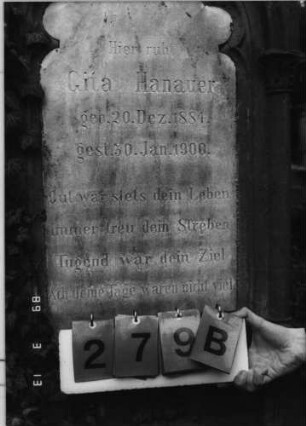 Hier ruht
Gita Hanauer
geb. 20. Dez. 1884.
gest. 30. Jan. 1900.
Gut war stets dein Leben
immer treu dein Streben
Tugend war dein Ziel
Ach deine Tage waren nicht viel
279B
89 3 13